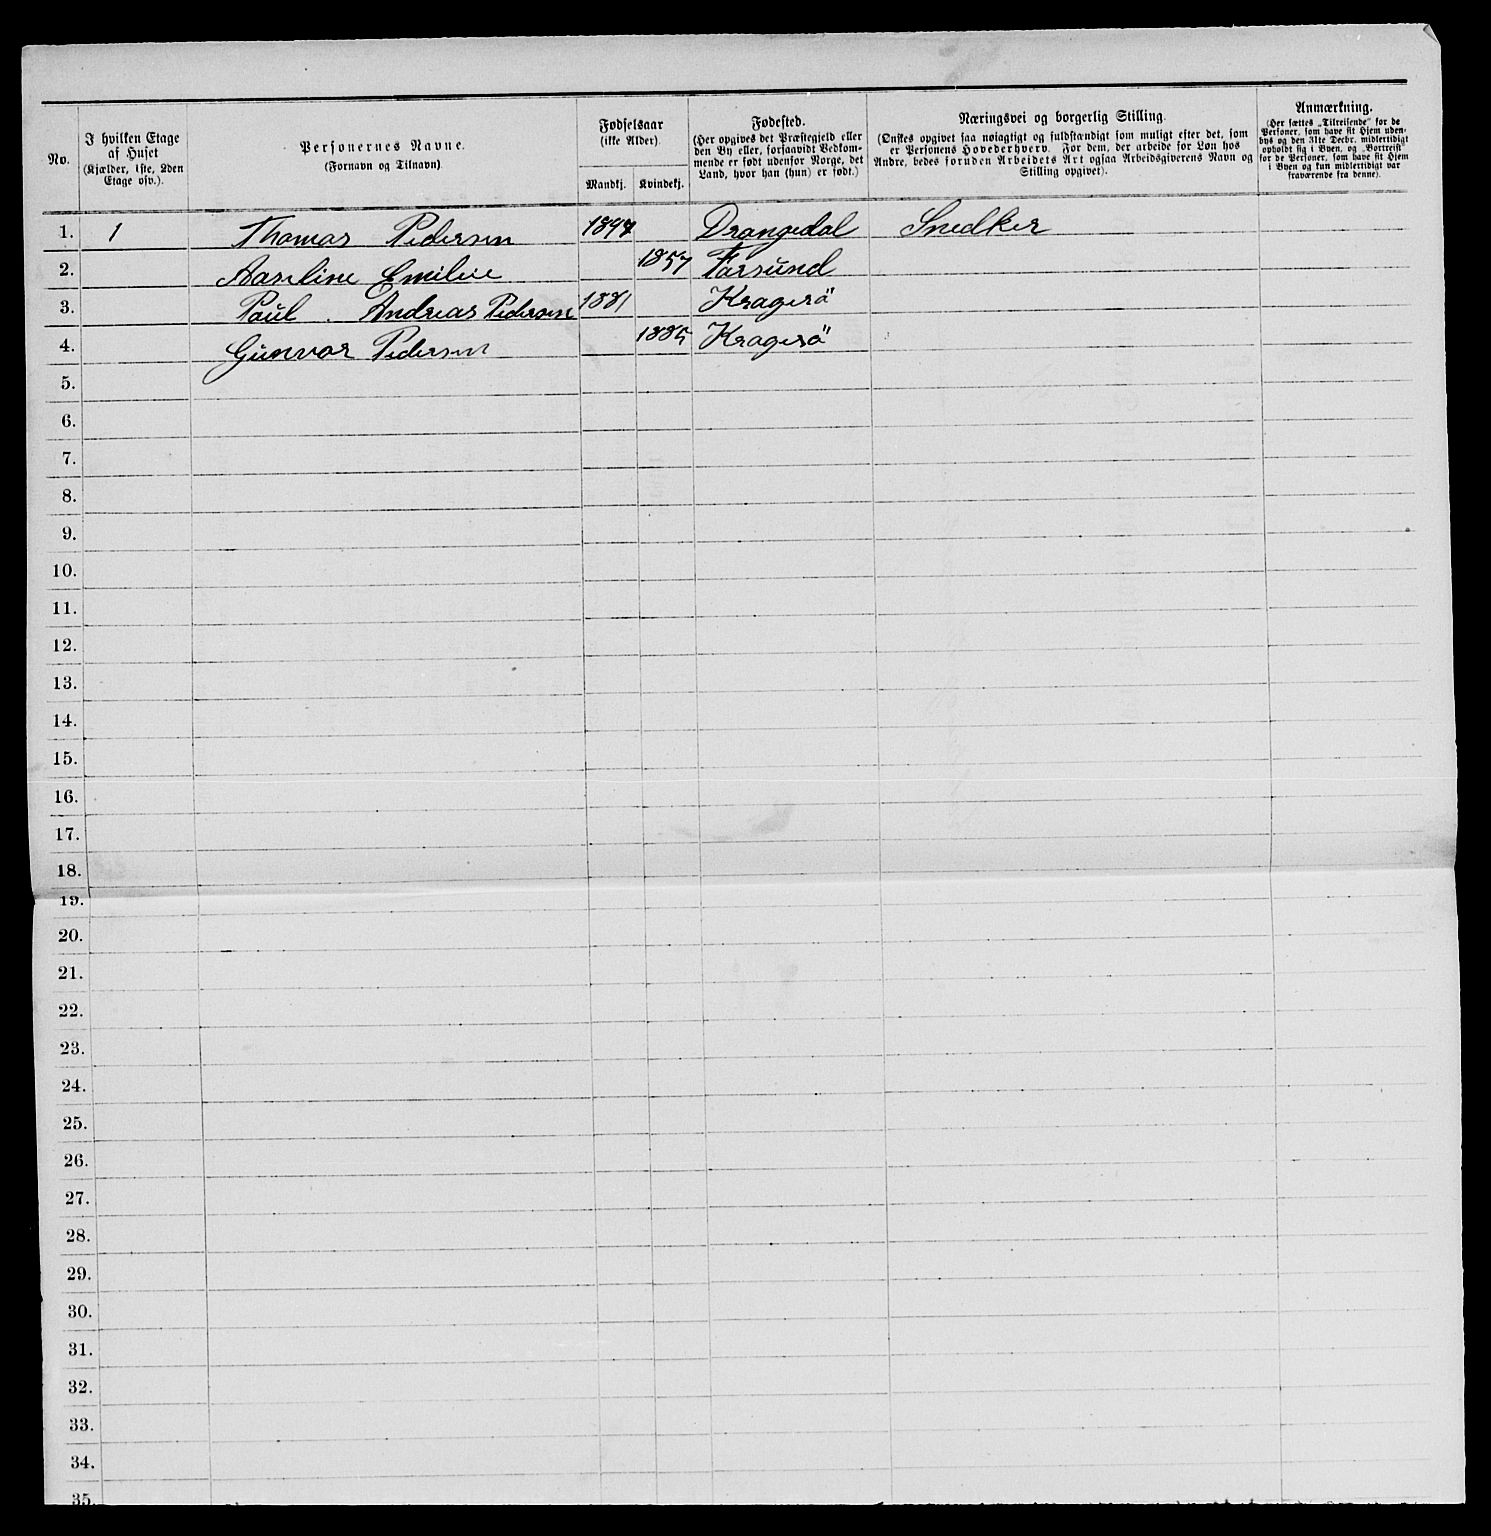 No.
I hvilken Etage
af Huset
(Kjælder, 1ste, 2den
Etage osv.).
Personernes Navne.
(Fornavn og Tilnavn).
Fødselsaar
(ikke Alder).
Mandkj. Kvindekj.
Fødested.
(Her opgives det Præstegjeld eller
den By eller, forsaavidt Vedkom-
mende er født udenfor Norge, det
Land, hvor han (hun) er født.)
Næringsvei og borgerlig Stilling.
(Ønskes opgivet saa nøiagtigt og fuldstændigt som muligt efter det, som
er Personens Hovederhverv. For dem, der arbeide for Løn hos
Andre, bedes foruden Arbeidets Art ogsaa Arbeidsgiverens Navn og
Stilling opgivet).
Anmærkning.
(Her sættes „Tilreisende" for de
Personer, som have sit Hjem uden-
bys og den 31te Decbr. midlertidigt
opholdt sig i Byen, og „Bortreist"
for de Personer, som have sit Hjem
i Byen og kun midlertidigt var
fraværende fra denne).
1. 1 Thomas Pedersen Drangedal Snedker
2. Aaseline Emilie 1857 Farsund
3. Paul Andreas Pedersen 1881 Kragerö
4. Gunvor Pedersen 1885 Kragerö
5.
6.
7.
8.
9.
10.
11.
12.
13.
14.
15.
16.
17.
18.
19.
20.
21.
22.
23.
24.
25.
26.
27.
28.
29.
30.
31.
32.
33.
34.
35.